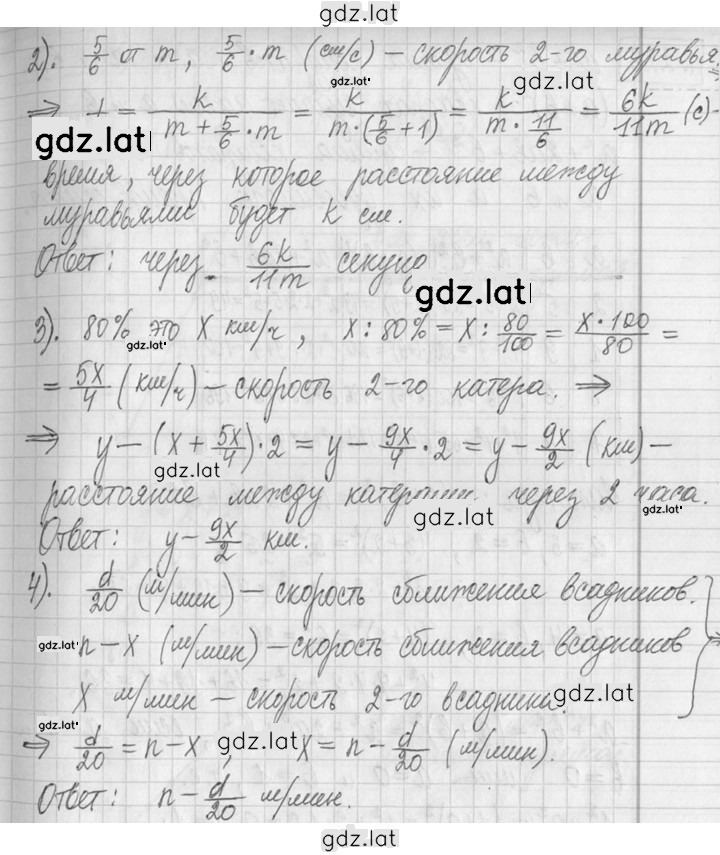 gdz.lat
2). 5/6 от m, 5/6 · m (см/с) — скорость 2-го муравья.
gdz.lat
gdz.lat
⇒ = k/(m + 5/6 · m) = k/(m · (5/6 + 1)) = k/(m · 11/6) = 6k/11m (с) -
gdz.lat
время, через которое расстояние между
муравьями будет k см.
Ответ: через 6k/11m секунд
gdz.lat
3). 80% это x км/ч, x : 80% = x : 80/100 = x · 100/80 =
gdz.lat
= 5x/4 (км/ч) — скорость 2-го катера. ⇒
⇒ y — (x + 5x/4) · 2 = y — 9x/4 · 2 = y — 9x/2 (км) —
gdz.lat
расстояние между катерами через 2 часа.
gdz.lat
gdz.lat
Ответ: y — 9x/2 км.
4). d/20 (м/мин) — скорость сближения всадников.
gdz.lat
n — x (м/мин) — скорость сближения всадников
gdz.lat
x м/мин — скорость 2-го всадника.
gdz.lat
gdz.lat
⇒ d/20 = n — x, x = n — d/20 (м/мин).
gdz.lat
Ответ: n — d/20 м/мин.
gdz.lat